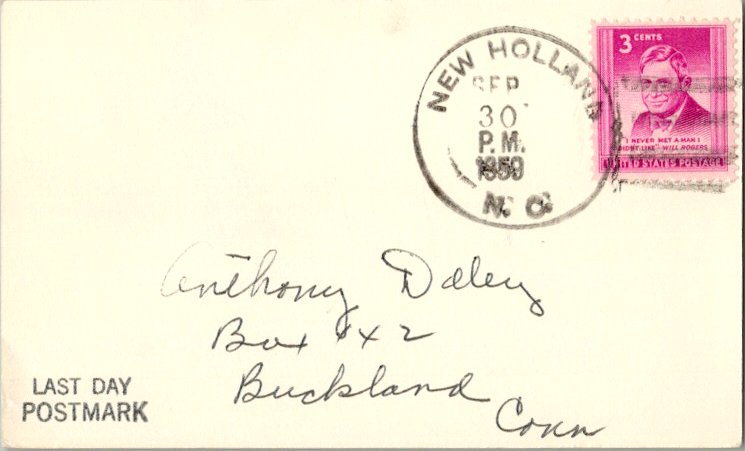 NEW HOLLAND
SEP
30
P.M.
1959
N. C.
3 CENTS
I NEVER MET A MAN I
DIDN'T LIKE" - WILL ROGERS
UNITED STATES POSTAGE
Anthony Daley
Box
Buckland
Conn
LAST DAY
POSTMARK